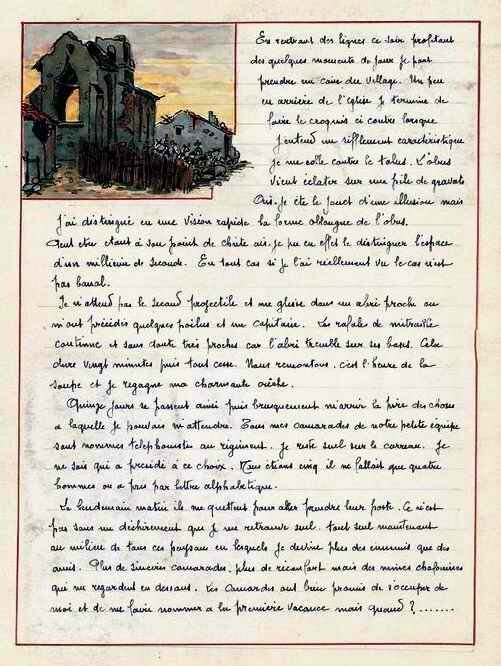 En rentrant des lignes ce soir profitant
des quelques moments de jour je part
prendre un coin du village. Un peu
en arrière de l'eglise je termine de
faire le croquis ci contre lorsque
j'entend un sifflement caractéristique
je me colle contre le talus. L'obus
vient éclater sur une pile de gravats
Ai-je été le jouet d'une illusion mais
j'ai distingué en une vision rapide la forme oblongue de l'obus.
Peut etre étant à son point de chute ais-je pu en effet le distinguer l'espace
d'un millième de seconde. En tout cas si je l'ai réellement vu le cas n'est
pas banal.
Je n'attend pas le second projectile et me glisse dans un abri proche ou
m'ont précédés quelques poilus et un capitaine. Les rafales de mitraille
continue et sans doute très proches car l'abri tremble sur ses bases. Cela
dure vingt minutes puis tout cesse. Nous remontons, c'est l'heure de la
soupe et je regagne ma charmante crèche.
Quinze jours se passent ainsi puis brusquement m'arrive la pire des choses
a laquelle je pouvais m'attendre. Tous mes camarades de notre petite équipe
sont nommés telephonistes au régiment. Je reste seul sur le carreau. Je
ne sais qui a présidé à ce choix. Nous étions cinq, il ne fallait que quatre
hommes on a pris par lettre alphabetique.
Le lendemain matin ils me quittent pour aller prendre leur poste. Ce n'est
pas sans un déchirement que je me retrouve seul, tout seul maintenant
au milieu de tous ces paysans en lesquels je devine plus des ennemis que des
amis. Plus de sincères camarades, plus de réconfort mais des mines chafouines
qui me regardent en dessous. Les camarades ont bien promis de s'occuper de
moi et de me faire nommer a la première vacance mais quand ? .......